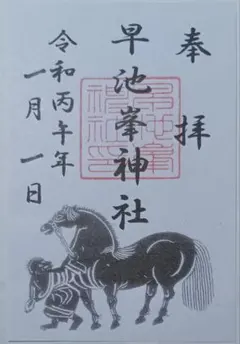 奉拝
早池峯神社
令和丙午年
一月一日